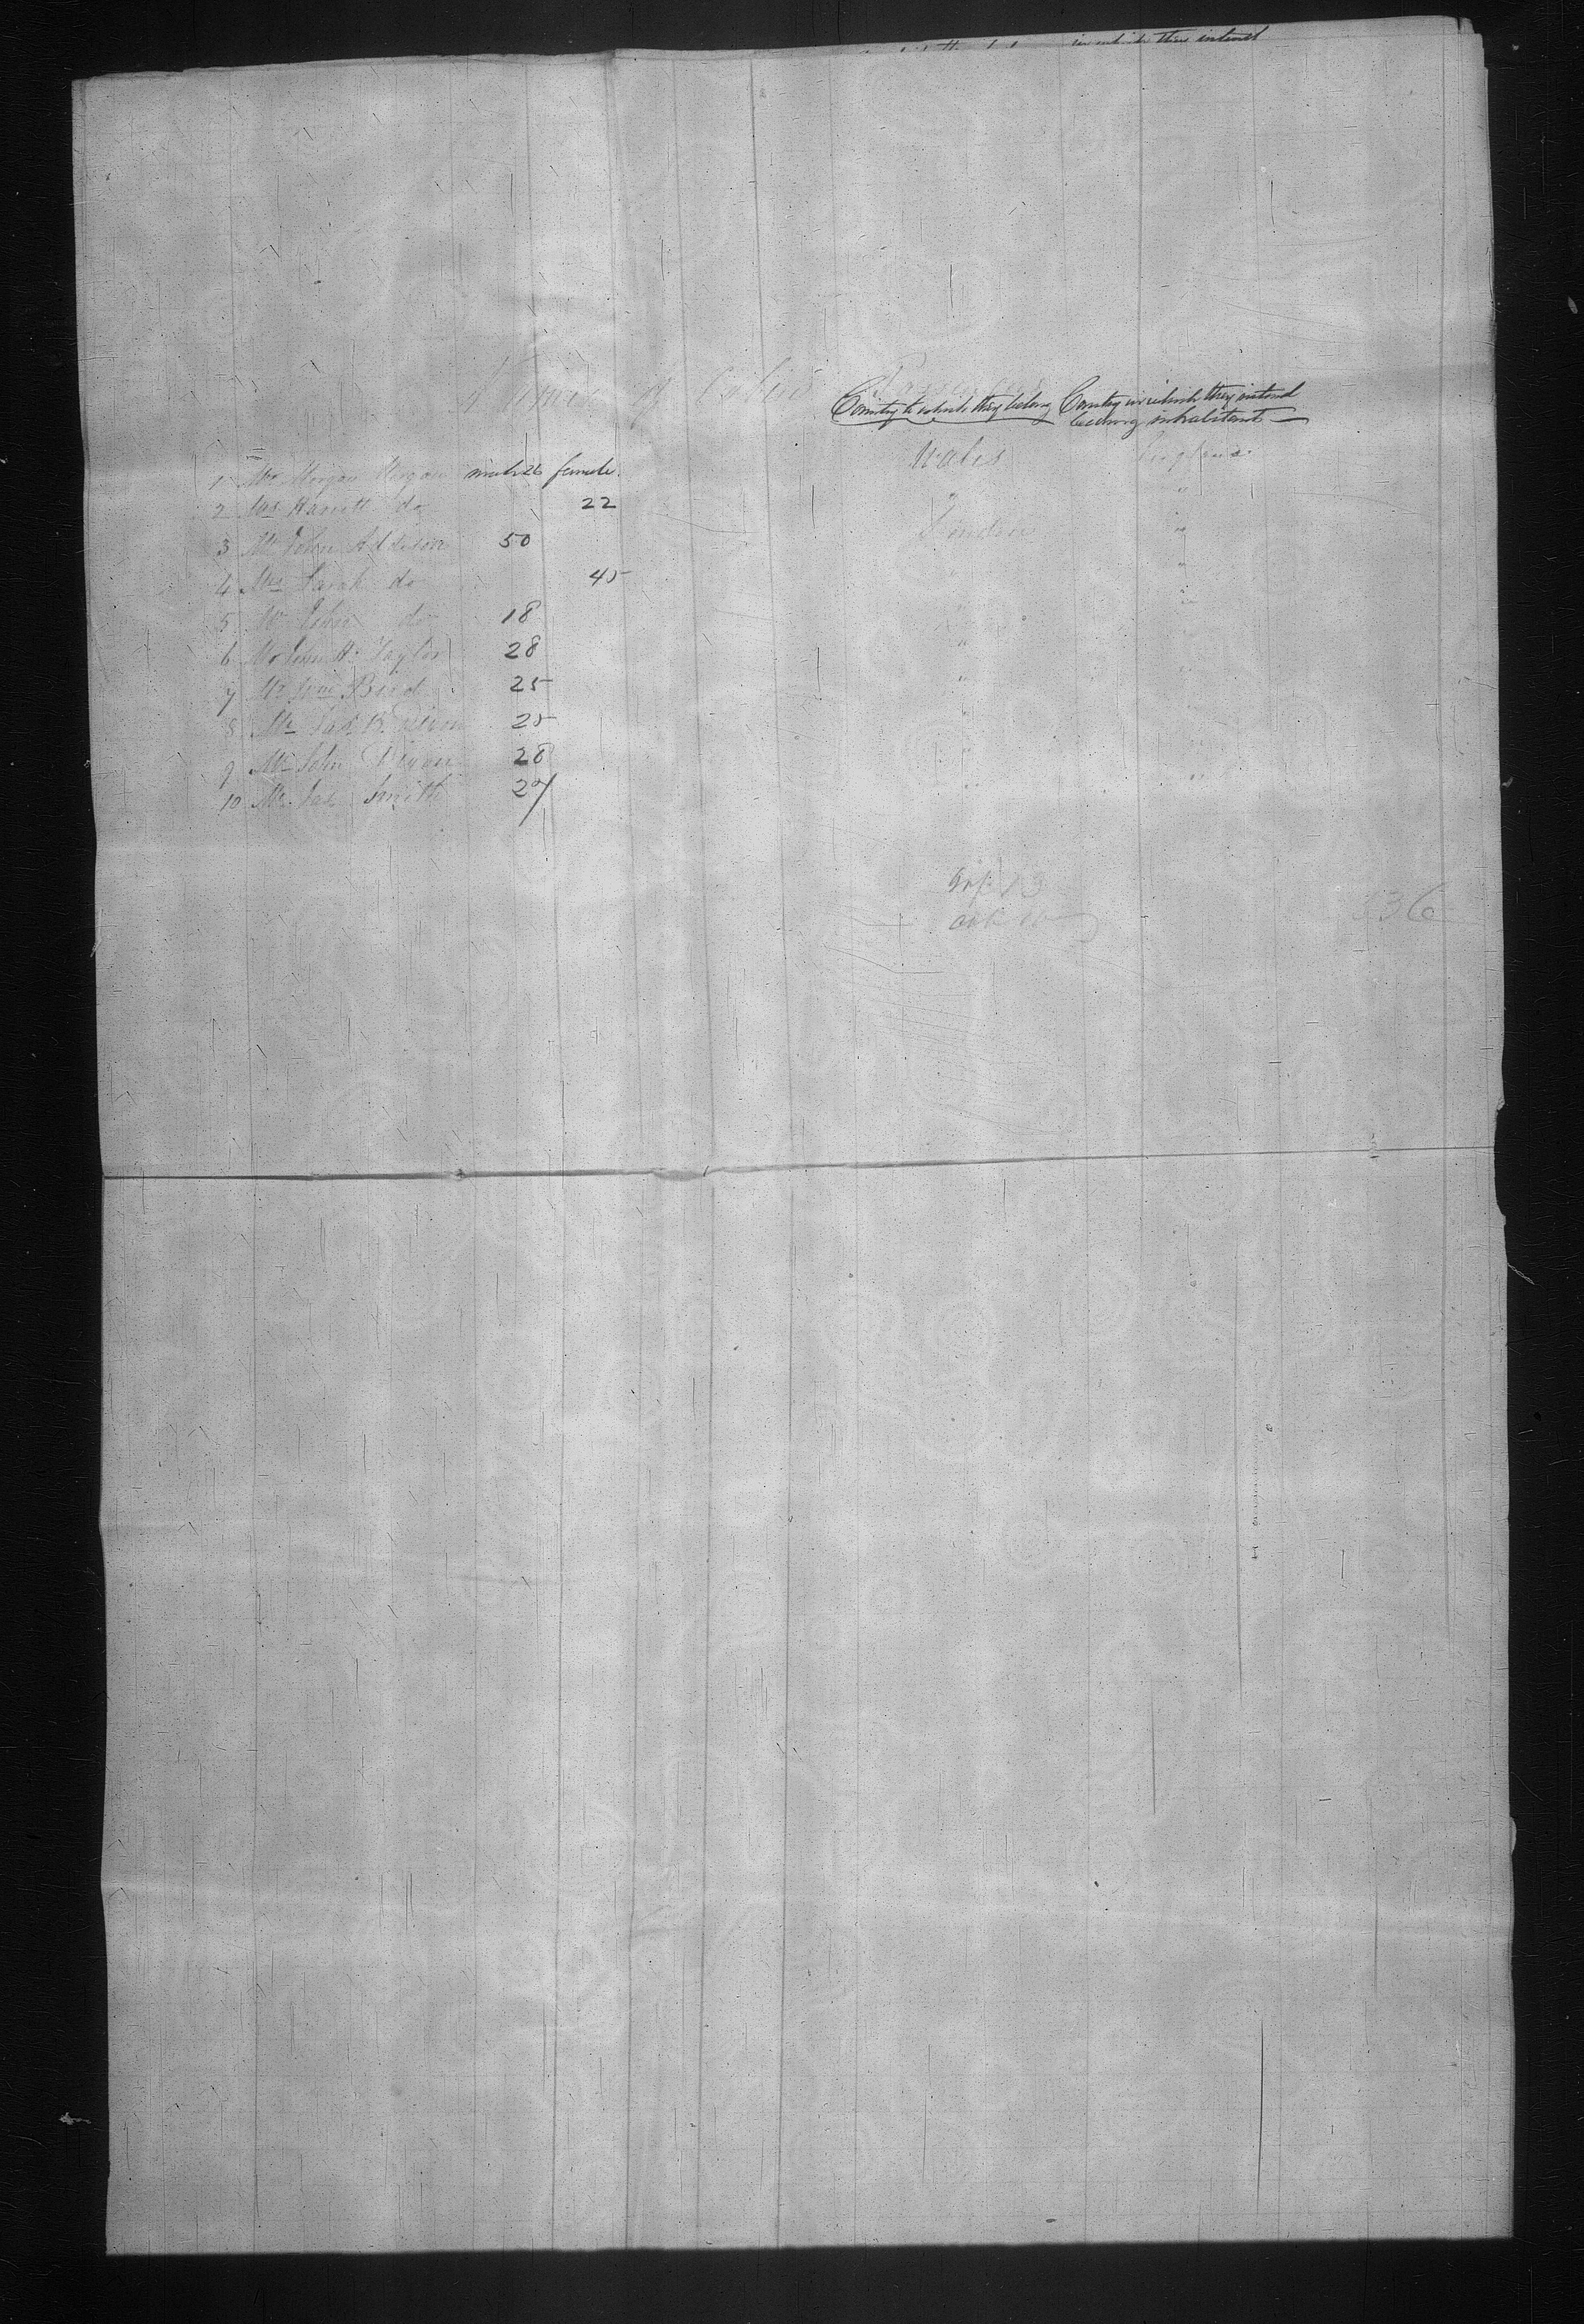 in which they intend
Names of Cabin Passengers
Country to which they belong Country in which they intend
becoming inhabitant
1 Mr Morgan Morgan male 26 female. Wales England
2 Mrs Harriett do 22 " "
3 Mr John Addison 50 London "
4 Mrs Sarah do 45 " "
5 Mr John do 18 " "
6 Mr John H. Taylor 28 " "
7 Mr Wm Bird 25 " "
8 Mr Jas R 25 " "
9 Mr John Dixon 28 " "
10 Mr Jas Smith 27 " "
336